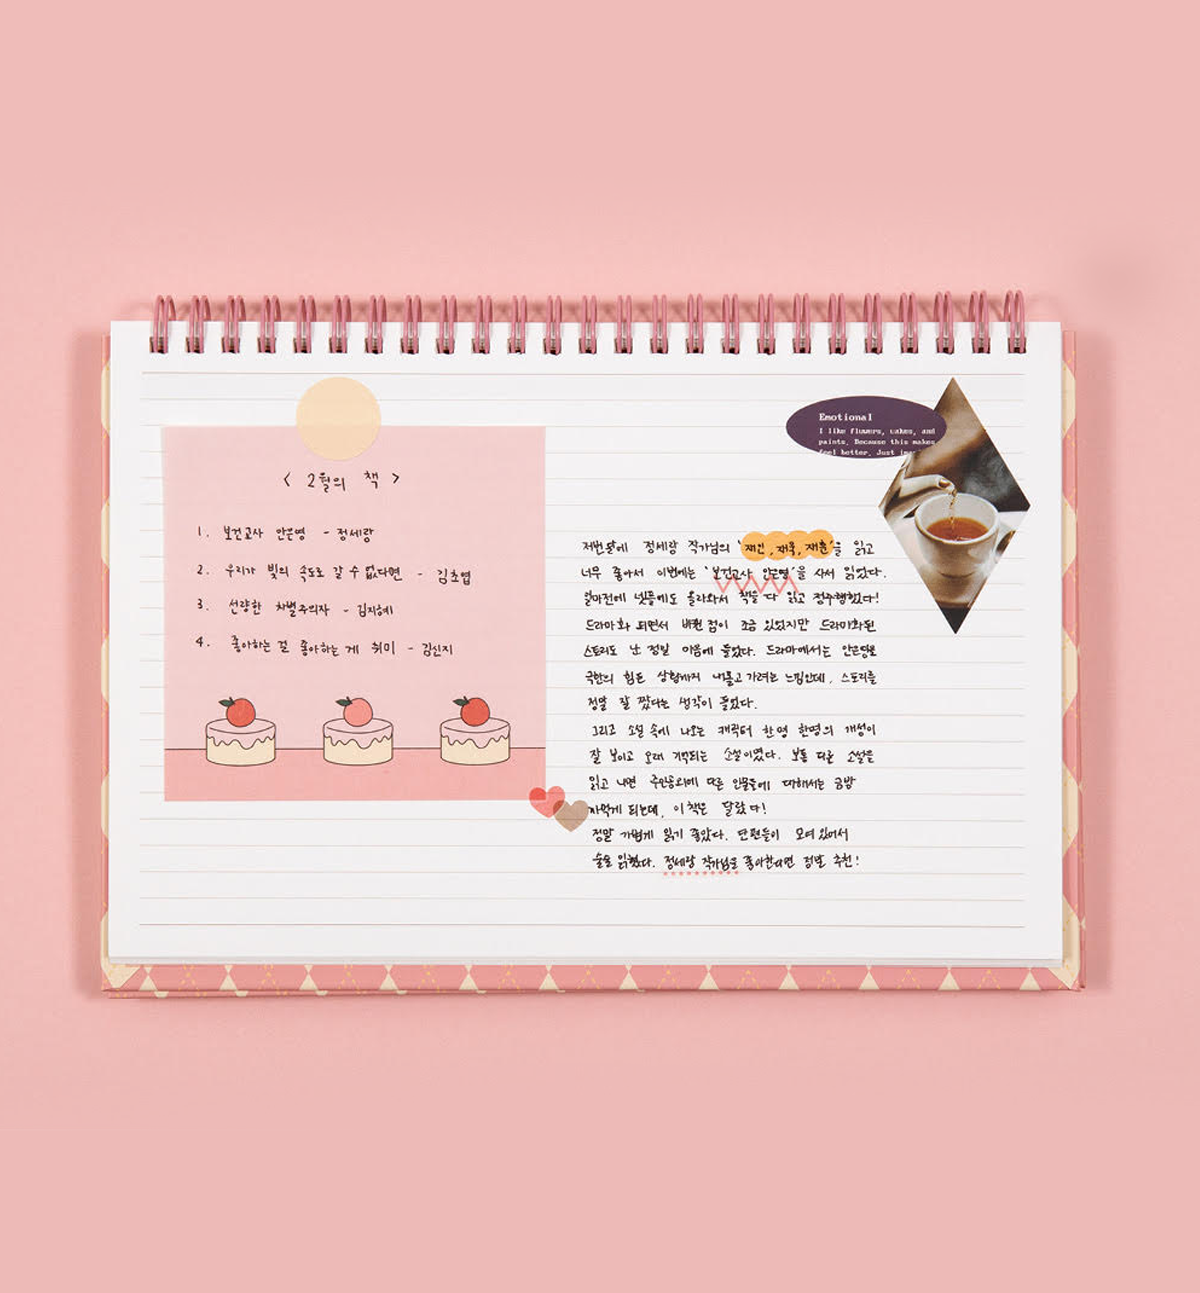 < 2월의 책 >
1. 보건교사 안은영 - 정세랑
2. 우리가 빛의 속도로 갈 수 없다면 - 김초엽
3. 선량한 차별주의자 - 김지혜
4. 좋아하는 걸 좋아하는 게 취미 - 김신지
Emotional
I like flowers, cakes, and
paints. Because this makes
feel better. Just
저번달에 정세랑 작가님의 '재인, 재욱, 재훈'을 읽고
너무 좋아서 이번에는 '보건교사 안은영'을 사서 읽었다.
얼마전에 넷플에도 올라와서 책을 다 읽고 정주행했다!
드라마화 되면서 바뀐 점이 조금 있었지만 드라마화된
스토리도 난 정말 마음에 들었다. 드라마에서는 안은영을
극한의 힘든 상황까지 내몰고 가려는 느낌인데, 스토리를
정말 잘 짰다는 생각이 들었다.
그리고 소설 속에 나오는 캐릭터 한명 한명의 개성이
잘 보이고 오래 기억되는 소설이였다. 보통 다른 소설을
읽고 나면 주인공외에 다른 인물들에 대해서는 금방
까먹게 되는데, 이 책은 달랐다!
정말 가볍게 읽기 좋았다. 단편들이 모여있어서
술술 읽혔다. 정세랑 작가님을 좋아한다면 정말 추천!